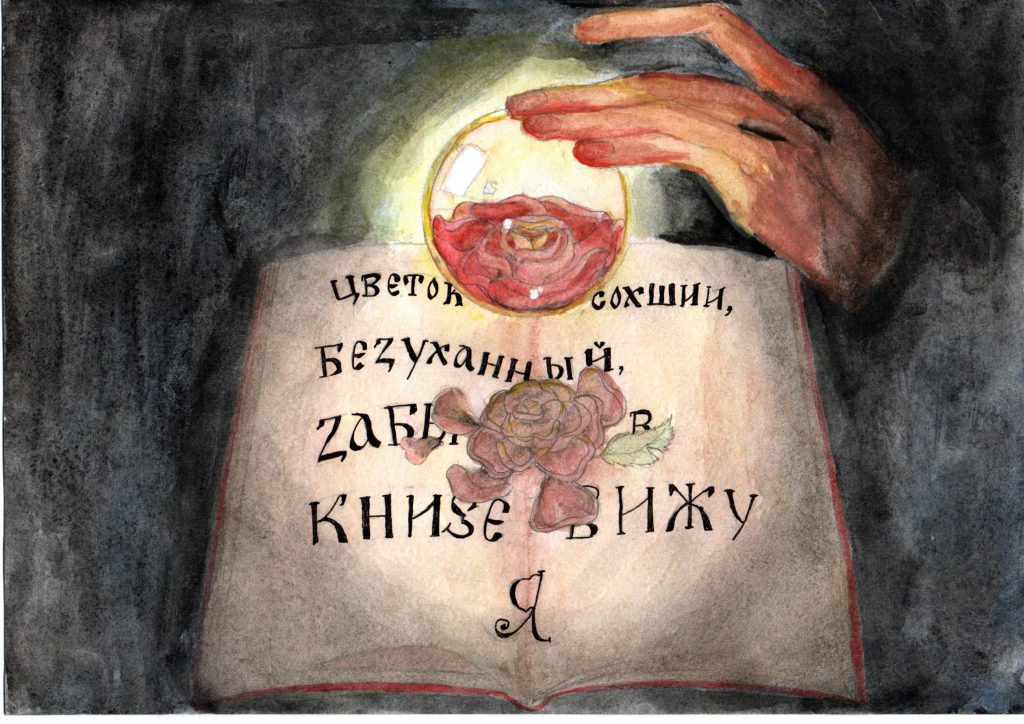 ЦВЕТОК СОХШИИ,
БЕЗУХАННЫЙ,
ЗАБЫ В
КНИЗЕ ВИЖУ
Я